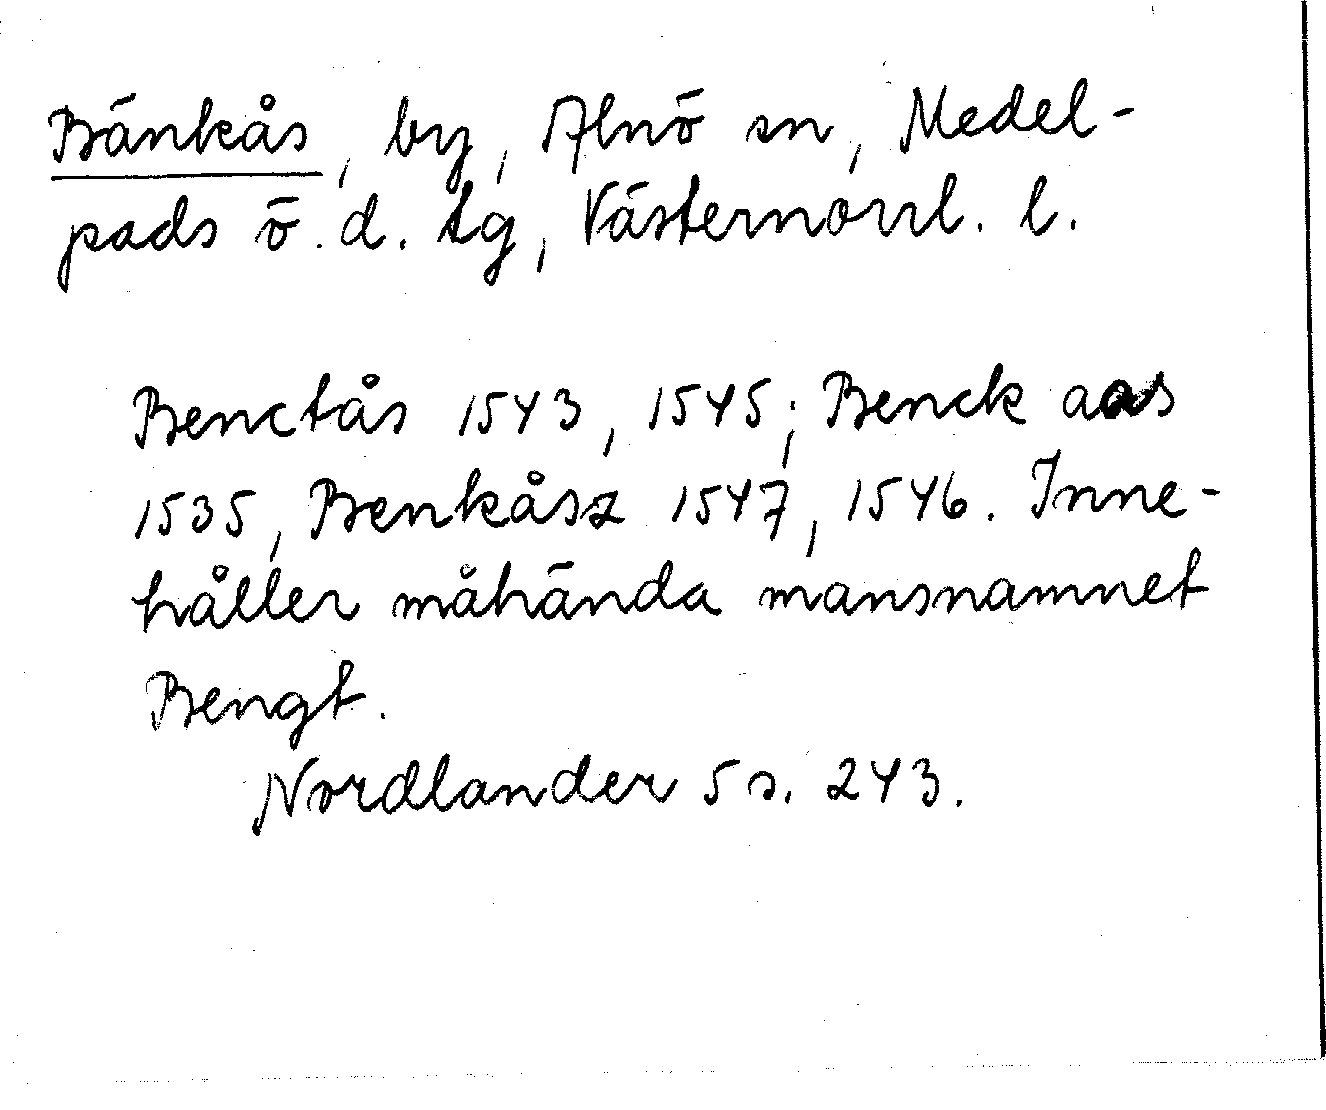 Bänkås, by, Alnö sn, Medel-
pads ö. d. tg, Västernorrl. l.
Benctås 1543, 1545; Benck aas
1535, Benkåsz 1547, 1546. Inne-
håller måhända mansnamnet
Bengt.
Nordlander 5 s. 243.